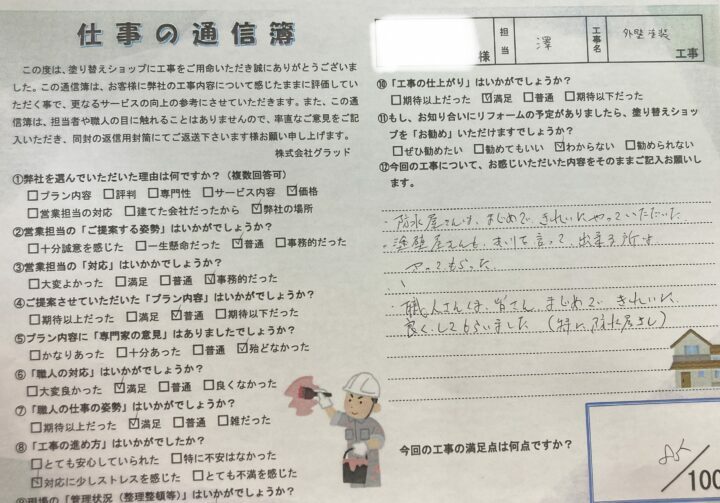 仕事の通信簿
この度は、塗り替えショップに工事をご用命いただき誠にありがとうございま
した。この通信簿は、お客様に弊社の工事内容について感じたままに評価してい
ただく事で、更なるサービスの向上の参考にさせていただきます。また、この通
信簿は、担当者や職人の目に触れることはありませんので、率直なご意見をご記
入いただき、同封の返信用封筒にてご返送下さいます様お願い申し上げます。
株式会社グラッド
①弊社を選んでいただいた理由は何ですか？（複数回答可）
□プラン内容 □評判 □専門性 □サービス内容 ☑価格
□営業担当の対応 □建てた会社だったから ☑弊社の場所
②営業担当の「ご提案する姿勢」はいかがでしょうか？
□十分誠意を感じた □一生懸命だった ☑普通 □事務的だった
③営業担当の「対応」はいかがでしょうか？
□大変よかった □満足 □普通 ☑事務的だった
④ご提案させていただいた「プラン内容」はいかがでしょうか？
□期待以上だった □満足 ☑普通 □期待以下だった
⑤プラン内容に「専門家の意見」はありましたでしょうか？
□かなりあった □十分あった □普通 ☑殆どなかった
⑥「職人の対応」はいかがでしょうか？
□大変良かった ☑満足 □普通 □良くなかった
⑦「職人の仕事の姿勢」はいかがでしょうか？
□期待以上だった ☑満足 □普通 □雑だった
⑧「工事の進め方」はいかがでしたか？
□とても安心していられた □特に不安はなかった
☑対応に少しストレスを感じた □とても不満を感じた
⑨現場の「管理状況（整理整頓等）」はいかがでしょうか？
様 担当 澤 工事名 外壁塗装 工事
⑩「工事の仕上がり」はいかがでしょうか？
□期待以上だった ☑満足 □普通 □期待以下だった
⑪もし、お知り合いにリフォームの予定がありましたら、塗り替えショッ
プを「お勧め」いただけますでしょうか？
□ぜひ勧めたい □勧めてもいい ☑わからない □勧められない
⑫今回の工事について、お感じいただいた内容をそのままご記入お願いし
ます。
・防水屋さんは、まじめで、きれいにやっていただいた
・塗壁屋さんも、言って、出来る所は
やってもらった
職人さんは、皆さん、まじめで きれいに
良くしてもらいました（特に防水屋さん）
今回の工事の満足点は何点ですか？
/100